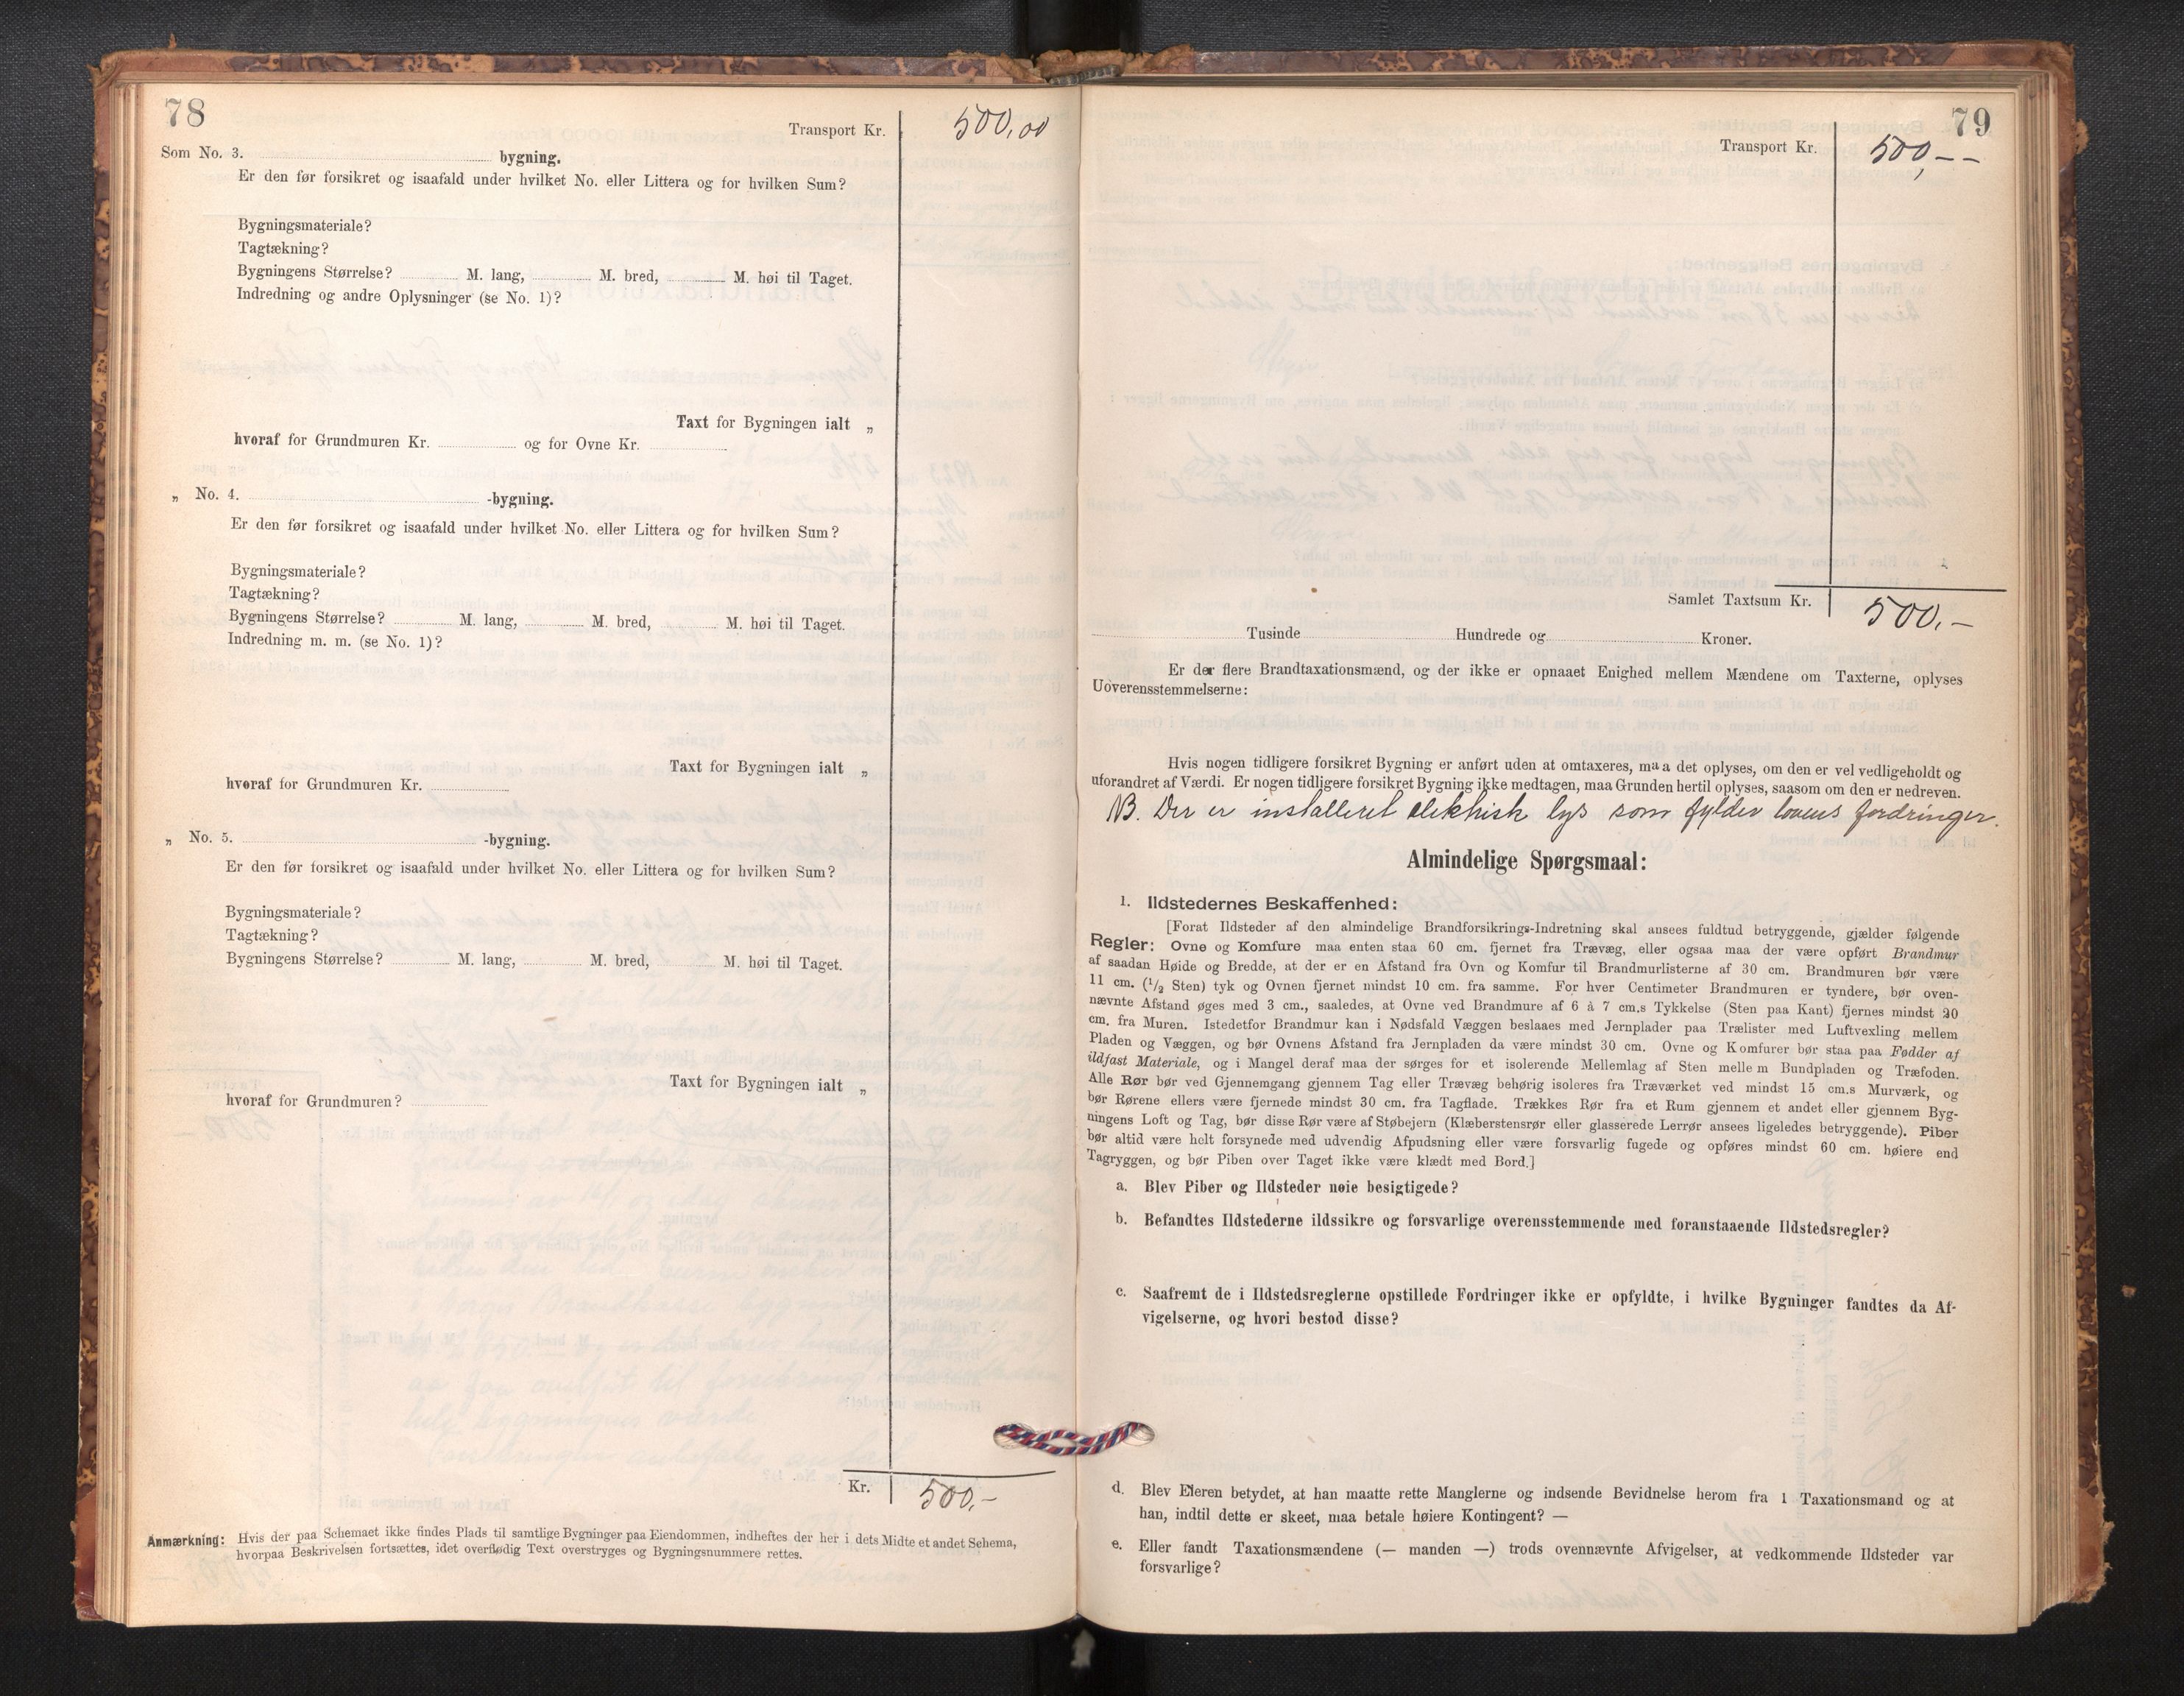 78
Transport Kr. 500,00
Som No. 3. bygning.
Er den før forsikret og isaafald under hvilket No. eller Littera og for hvilken Sum?
Bygningsmateriale?
Tagtækning?
Bygningens Størrelse? M. lang, M. bred, M. høi til Taget.
Indredning og andre Oplysninger (se No. 1)?
Taxt for Bygningen ialt „
hvoraf for Grundmuren Kr. og for Ovne Kr.
„ No. 4. -bygning.
Er den før forsikret og isaafald under hvilket No. eller Littera og for hvilken Sum?
Bygningsmateriale?
Tagtækning?
Bygningens Størrelse? M. lang, M. bred, M. høi til Taget.
Indredning m. m. (se No. 1)?
Taxt for Bygningen ialt „
hvoraf for Grundmuren Kr.
„ No. 5. -bygning.
Er den før forsikret og isaafald under hvilket No. eller Littera og for hvilken Sum?
Bygningsmateriale?
Tagtækning?
Bygningens Størrelse? M. lang, M. bred, M. høi til Taget.
Taxt for Bygningen ialt „
hvoraf for Grundmuren?
Kr. 500,-
Anmærkning: Hvis der paa Schemaet ikke findes Plads til samtlige Bygninger paa Eiendommen, indheftes der her i dets Midte et andet Schema,
hvorpaa Beskrivelsen fortsættes, idet overflødig Text overstryges og Bygningsnummere rettes.
79
Transport Kr. 500,--
Samlet Taxtsum Kr. 500,-
Tusinde Hundrede og Kroner.
Er der flere Brandtaxationsmænd, og der ikke er opnaaet Enighed mellem Mændene om Taxterne, oplyses
Uoverensstemmelserne:
Hvis nogen tidligere forsikret Bygning er anført uden at omtaxeres, maa det oplyses, om den er vel vedligeholdt og
uforandret af Værdi. Er nogen tidligere forsikret Bygning ikke medtagen, maa Grunden hertil oplyses, saasom om den er nedreven.
NB. Der er installeret elektrisk lys som fylder lovens fordringer.
Almindelige Spørgsmaal:
1. Ildstedernes Beskaffenhed:
[Forat Ildsteder af den almindelige Brandforsikrings-Indretning skal ansees fuldtud betryggende, gjælder følgende
Regler: Ovne og Komfure maa enten staa 60 cm. fjernet fra Trævæg, eller ogsaa maa der være opført Brandmur
af saadan Høide og Bredde, at der er en Afstand fra Ovn og Komfur til Brandmurlisterne af 30 cm. Brandmuren bør være
11 cm. (1/2 Sten) tyk og Ovnen fjernet mindst 10 cm. fra samme. For hver Centimeter Brandmuren er tyndere, bør oven-
nævnte Afstand øges med 3 cm., saaledes, at Ovne ved Brandmure af 6 à 7 cm.s Tykkelse (Sten paa Kant) fjernes mindst 20
cm. fra Muren. Istedetfor Brandmur kan i Nødsfald Væggen beslaaes med Jernplader paa Trælister med Luftvexling mellem
Pladen og Væggen, og bør Ovnens Afstand fra Jernpladen da være mindst 30 cm. Ovne og Komfurer bør staa paa Fødder af
ildfast Materiale, og i Mangel deraf maa der sørges for et isolerende Mellemlag af Sten mellem Bundpladen og Træfoden.
Alle Rør bør ved Gjennemgang gjennem Tag eller Trævæg behørig isoleres fra Træværket ved mindst 15 cm.s Murværk, og
bør Rørene ellers være fjernede mindst 30 cm. fra Tagflade. Trækkes Rør fra et Rum gjennem et andet eller gjennem Byg-
ningens Loft og Tag, bør disse Rør være af Støbejern (Klæberstensrør eller glasserede Lerrør ansees ligeledes betryggende). Piber
bør altid være helt forsynede med udvendig Afpudsning eller være forsvarlig fugede og opføres mindst 60 cm. høiere end
Tagryggen, og bør Piben over Taget ikke være klædt med Bord.]
a. Blev Piber og Ildsteder nøie besigtigede?
b. Befandtes Ildstederne ildssikre og forsvarlige overensstemmende med foranstaaende Ildstedsregler?
c. Saafremt de i Ildstedsreglerne opstillede Fordringer ikke er opfyldte, i hvilke Bygninger fandtes da Af-
vigelserne, og hvori bestod disse?
d. Blev Eieren betydet, at han maatte rette Manglerne og indsende Bevidnelse herom fra 1 Taxationsmand og at
han, indtil dette er skeet, maa betale høiere Kontingent? —
e. Eller fandt Taxationsmændene (— manden —) trods ovennævnte Afvigelser, at vedkommende Ildsteder var
forsvarlige?